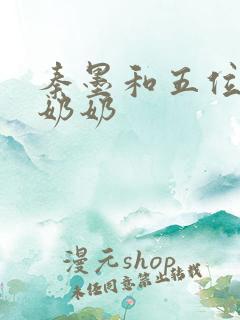 秦墨和五位
奶奶
漫元shop
未经同意禁止转载